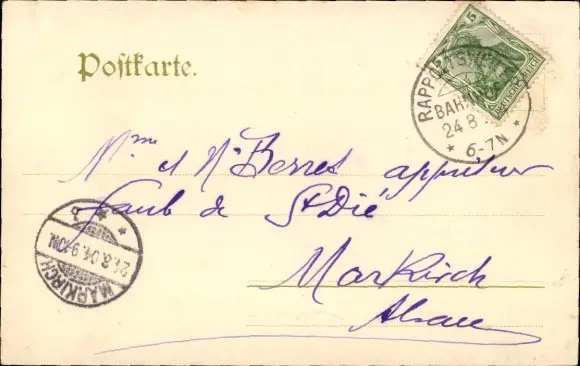 Postkarte.
5
DEUTSCHES REICH
RAPPOLTSWEILER
BAHNHOF
24 8
* 6-7N *
Mme et Mr Berret appréteur
Faub de St Dié
Markirch
Alsace
MARKIRCH
24.8.04. 9-10N.
* b *